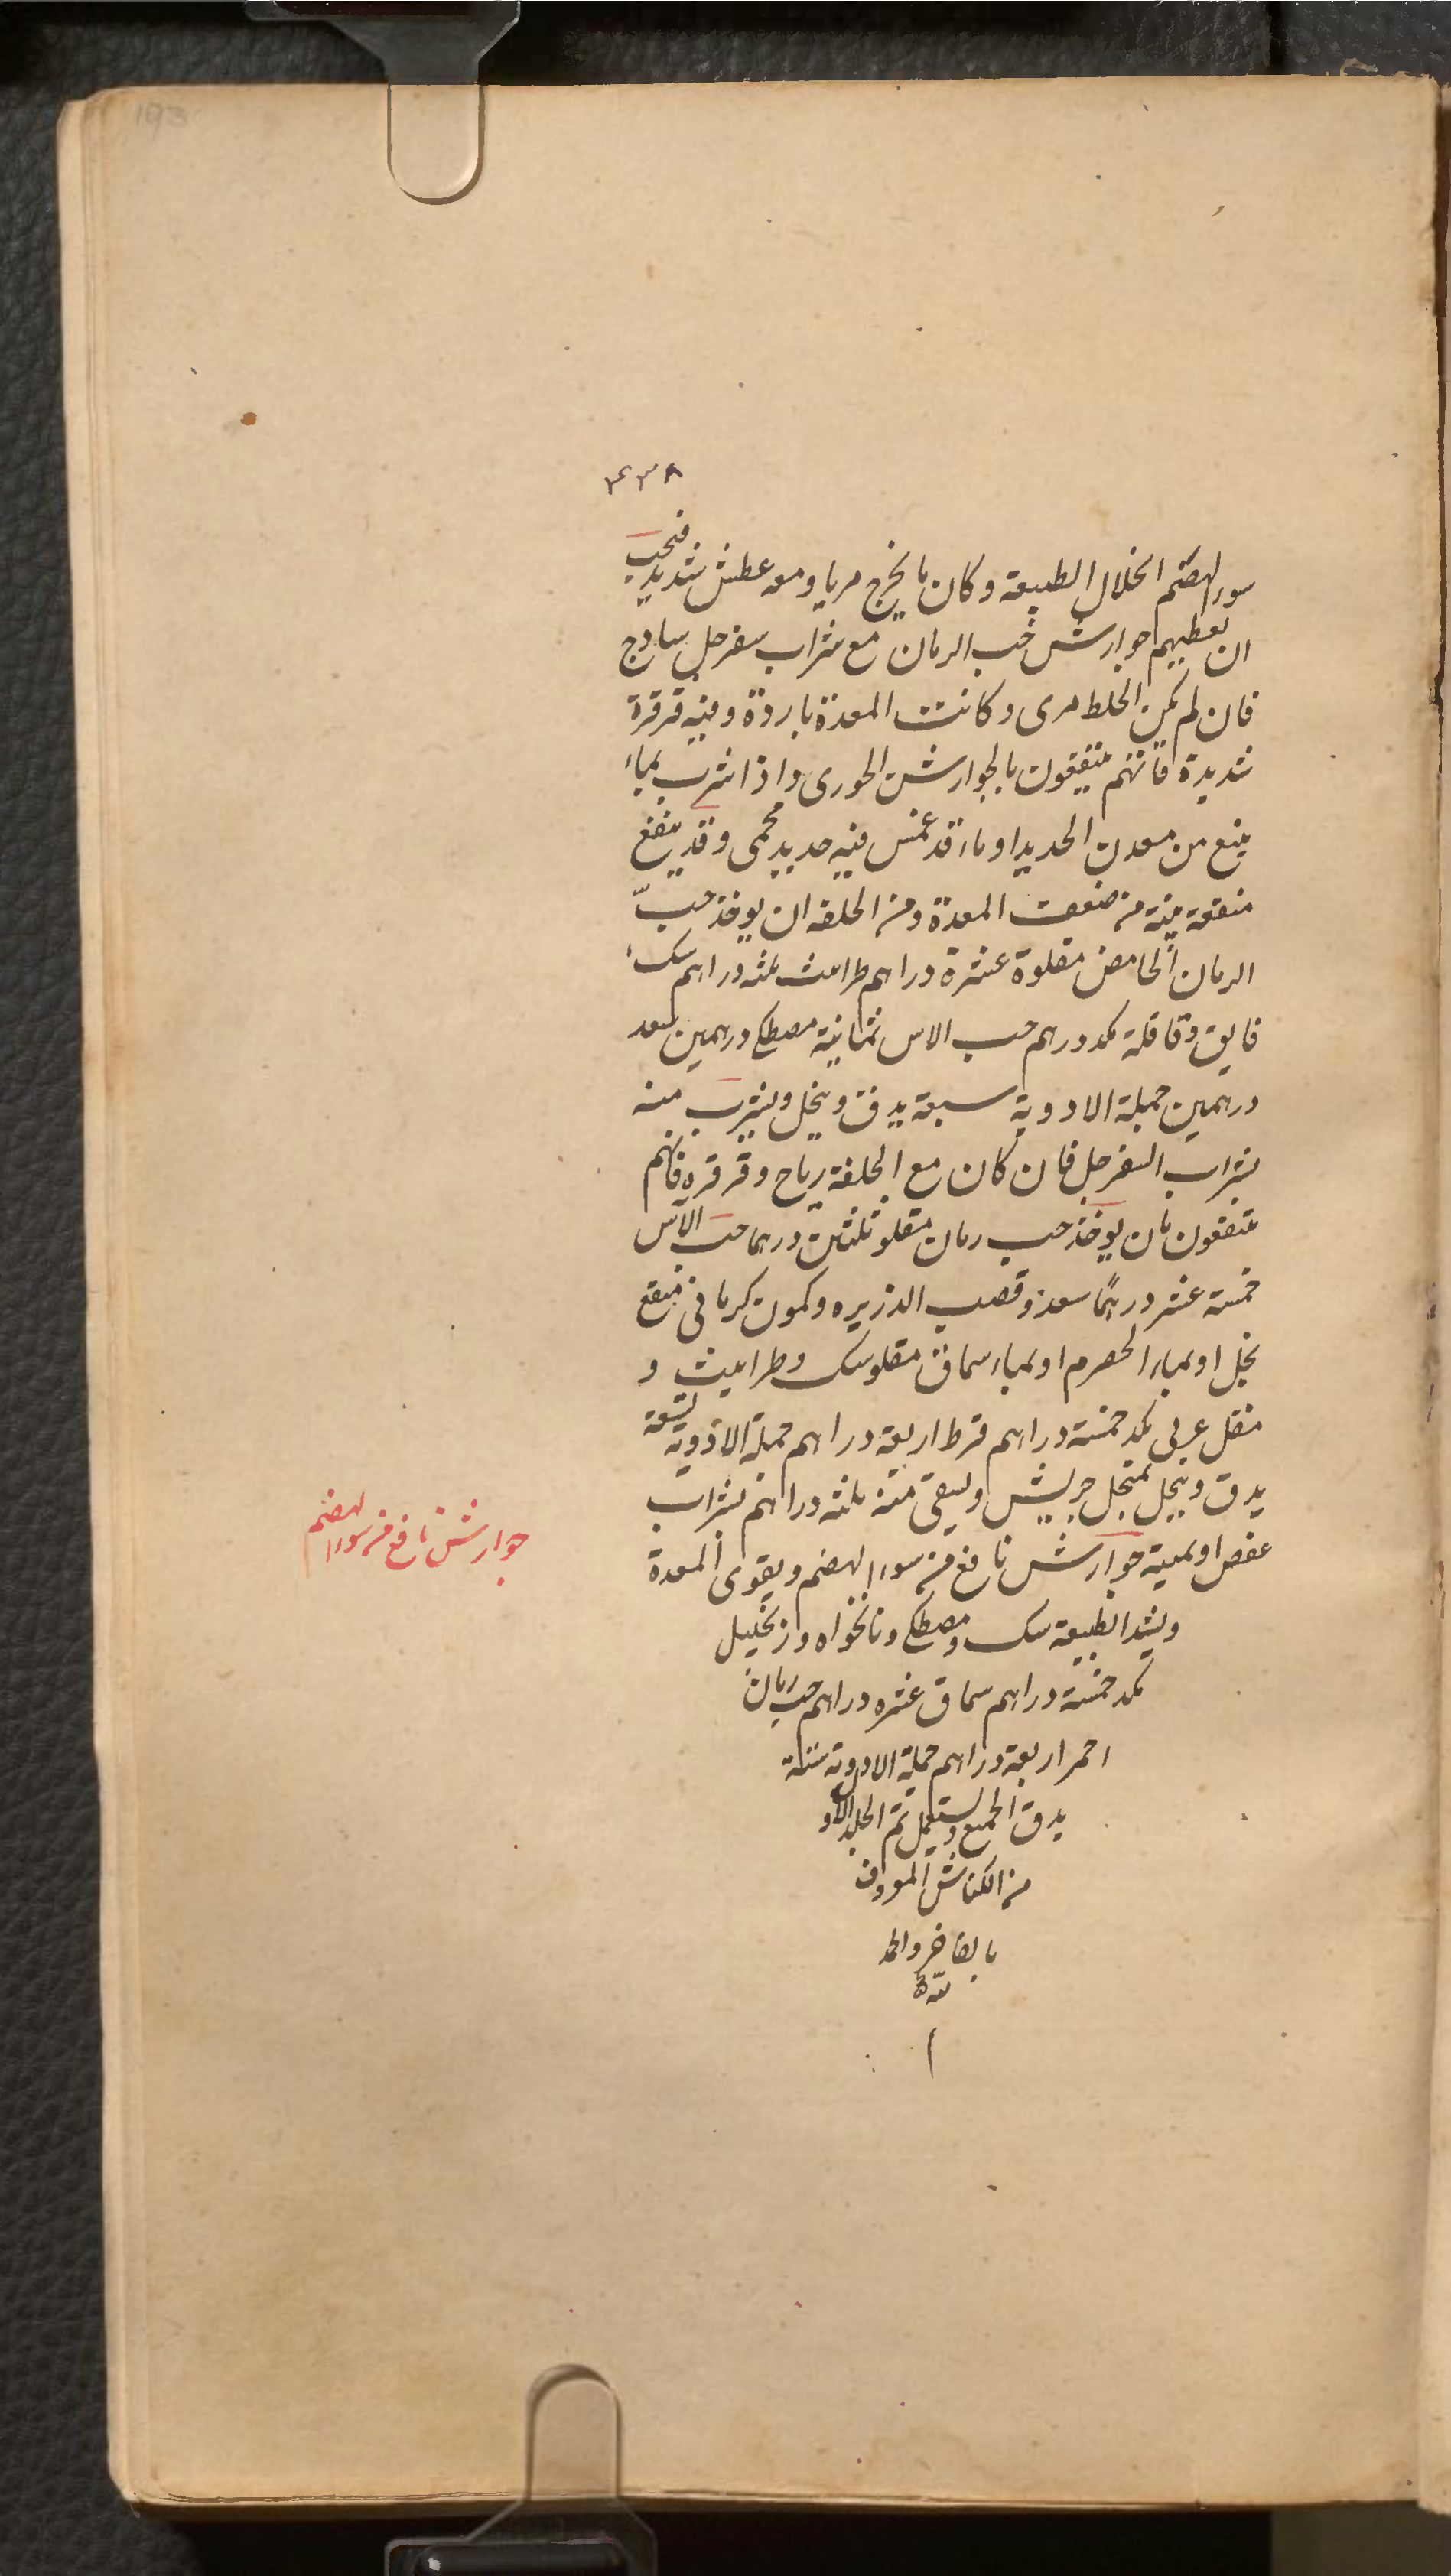 193
٤٣٨
سوء الهضم انحلال الطبيعة وكان ما يخرج مريا ومعه عطش شديد فيجب
ان يعطيهم جوارش حب الرمان مع شراب سفرجل ساذج
فان لم يكن الخلط مرى وكانت المعدة باردة وفيه قرقرة
شديدة فانهم ينتفعون بالجوارشن الخوزى واذا شرب بماء
ينبع من معدن الحديد او ماء قد غمس فيه حديد محمى وقد ينفع
منفعة بينة من ضعف المعدة ومن الخلفه ان يوخذ حبّ
الرمان الحامض مقلوة عشرة دراهم طراثيث ثلثه دراهم سك
فايق وقاقلة مكد درهم حب الاس ثمانية مصطكى درهمين سعد
درهمين جملة الادوية سبعة يدق وينخل ويشرب منه
بشراب السفرجل فان كان مع الخلفة رياح وقرقره فانهم
ينتفعون بان يوخذ حب رمان مقلو ثلثين درهما حب الآس
خمسة عشر درهمًا سعد وقصب الذريره وكمون كرمانى منقع
بخل او بماء الحصرم او بماء سماق مقلو سك وطراثيث و
مقل عربى مكد خمسة دراهم قرط اربعة دراهم جملة الادوية تسعة
يدق وينخل بمنخل جريش ويسقى منه ثلثه دراهم بشراب
عفص او بميبة جوارشن نافع من سوء الهضم ويقوى المعدة
ويشد الطبيعة سك ومصطكى ونانخواه وزنجبيل
مكد خمسة دراهم سماق عشره دراهم حب رمان
احمر اربعة دراهم جملة الادوية ستة
يدق الجميع ويستعمل تم الجلد الاول
من الكناش المعروف
بالفاخر والحمد
لله
جوارشن نافع من سوء الهضم